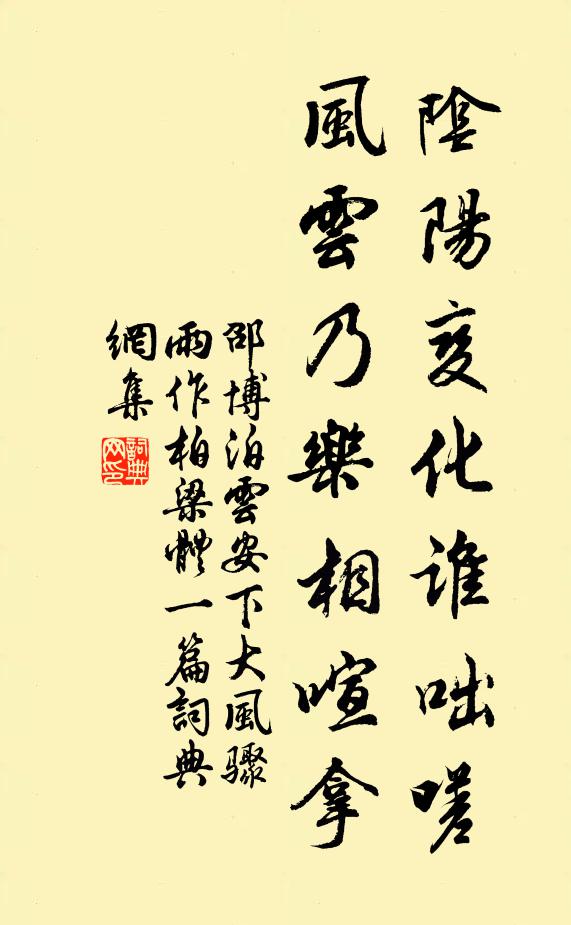 陰陽變化誰咄嗟
風雲乃樂相喧拿
邵博泊雲安下大風驟
雨作柏梁體一篇詞典
網集
詞典
网印